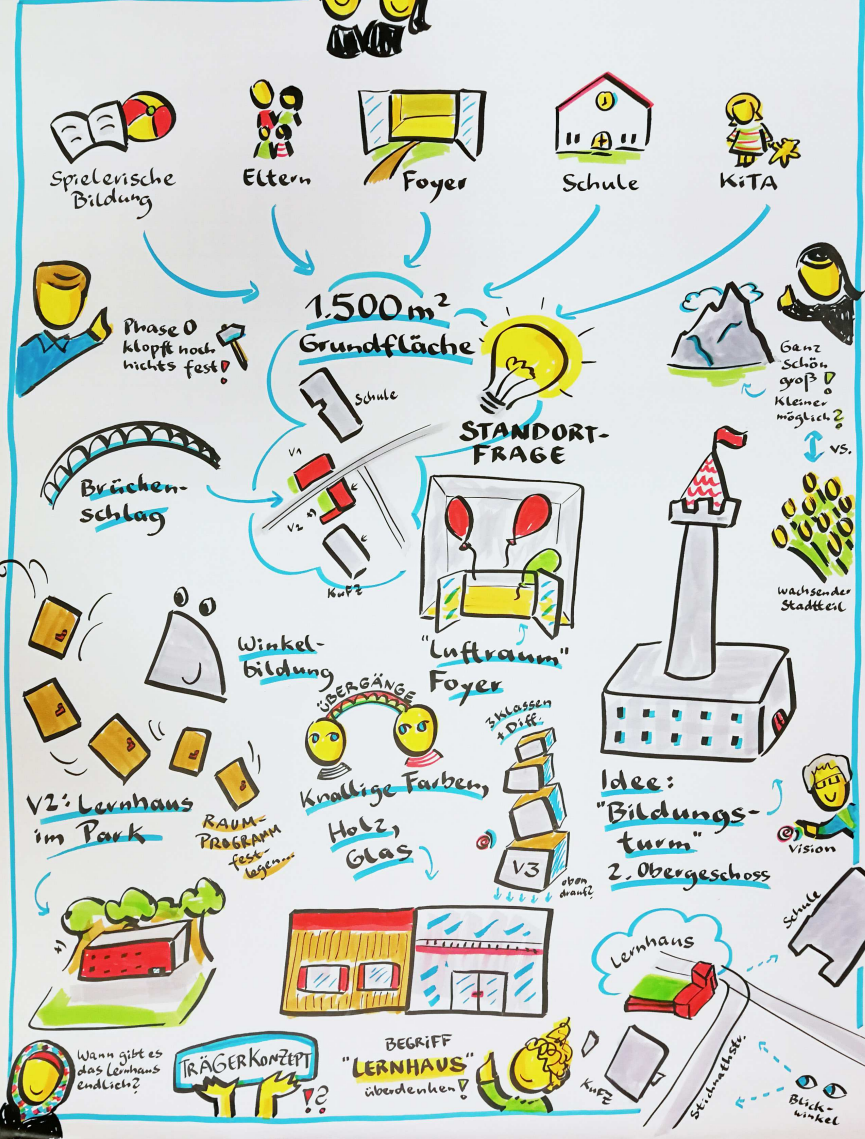 Spielerische
Bildung
Eltern
Foyer
Schule
KiTA
1.500 m²
Grundfläche
Phase 0
klopft noch
nichts fest!
Schule
V1
V2 *)
KuFZ
STANDORT-
FRAGE
Ganz
schön
groß!
Kleiner
möglich?
vs.
wachsender
Stadtteil
Brücken-
schlag
Winkel-
bildung
"Luftraum"
Foyer
ÜBERGÄNGE
Knallige Farben,
Holz,
Glas
3 Klassen
+ Diff.
V3
oben
drauf?
V2: Lernhaus
im Park
RAUM-
PROGRAMM
fest-
legen...
Idee:
"Bildungs-
turm"
2. Obergeschoss
Vision
*)
Lernhaus
Schule
KuFZ
Stichnothstr.
Blick-
winkel
Wann gibt es
das Lernhaus
endlich?
TRÄGERKONZEPT
!?
BEGRIFF
"LERNHAUS"
überdenken!